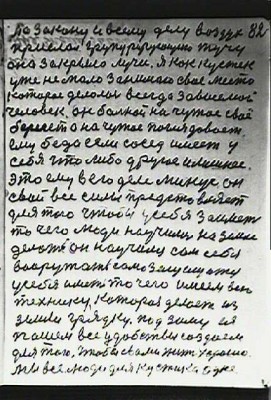 По закону и всему делу воздух 82
прислал группирующую тучу
она закрыло лучи. я как кустек
уже не мало занимаю свое место
которое делалось всегда зависемой
человек. он болкой на чужое свое
берегет а на чужое поглядовает.
ему беда если сосед имеет у
себя что либо другое именное.
Это ему в его деле минус он
свои все силы предоставляет
для того чтобы у себя заиметь
то чего люди научились на земле
делать он научился сам себя
вооружать самозащиту
у себя иметь то чего имеем вон
технику. которая делает из
земли грядку. под зиму ея
пашем все удобства создаем
для того, чтобы жить хорошо.
Мы все люди для кустика одне